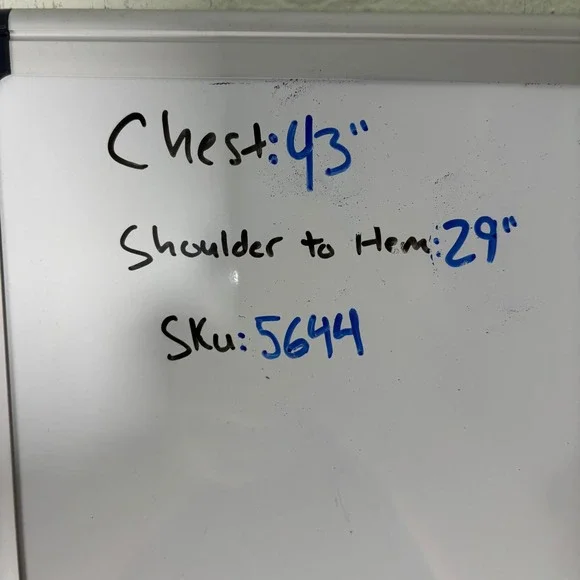 Chest: 43"
Shoulder to Hem: 29"
Sku: 5644